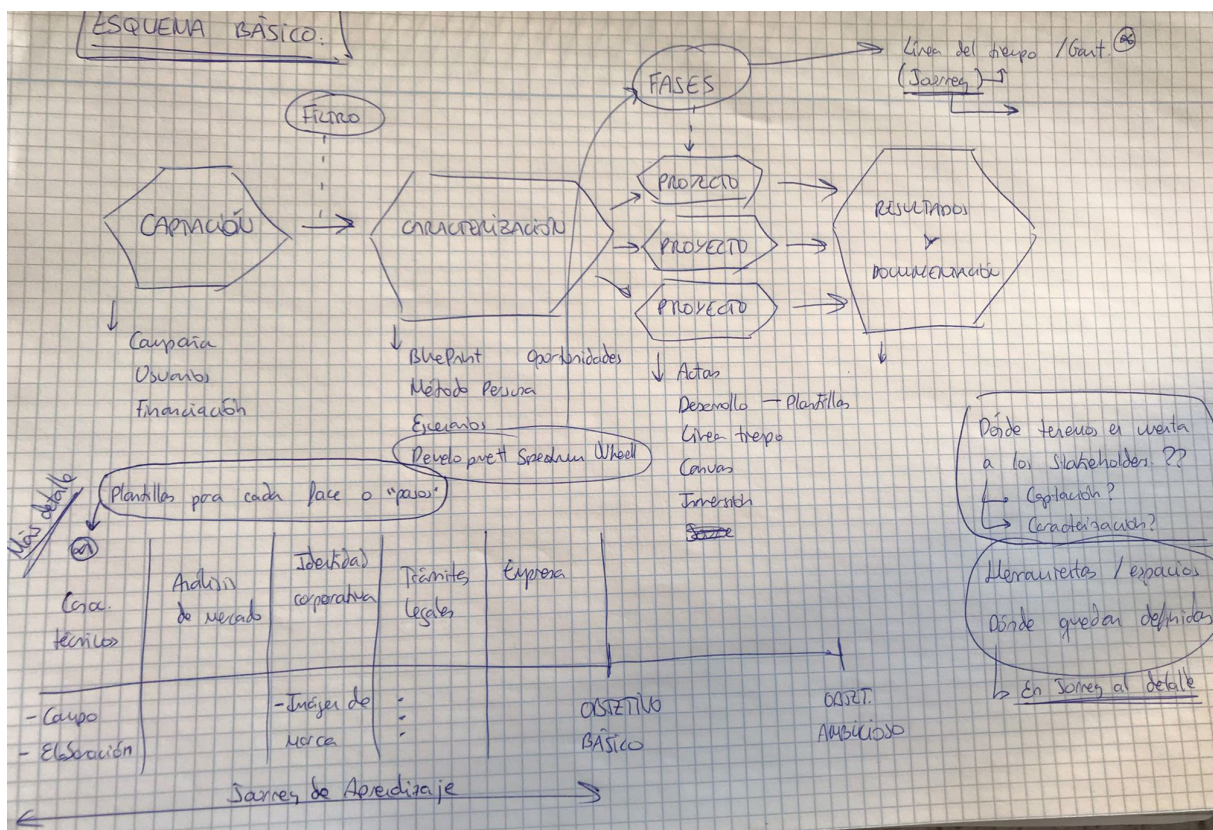 ESQUEMA BÁSICO:
FILTRO
FASES
Línea del tiempo / Gant.
(Jorney)
CAPTACIÓN
CARACTERIZACIÓN
PROYECTO
PROYECTO
PROYECTO
RESULTADOS
Y
DOCUMENTACIÓN
Campaña
Usuarios
Financiación
BluePrint oportunidades
Método Persona
Escenarios
Development Spectrum Wheel
Actas
Desarrollo — Plantillas
Línea tiempo
Canvas
Inmersión
Dónde tenemos en cuenta
a los Stakeholders ??
Captación?
Caracterización?
Herramientas / espacios
Dónde quedan definidas
En Jorney al detalle
Más detalle
Plantillas para cada face o "paso"
Carac.
técnicos
Análisis
de mercado
Identidad
corporativa
Trámites
legales
Empresa
- Campo
- Elaboración
- Imágen de
marca
OBJETIVO
BÁSICO
OBJET.
AMBICIOSO
Jorney de Aprendizaje